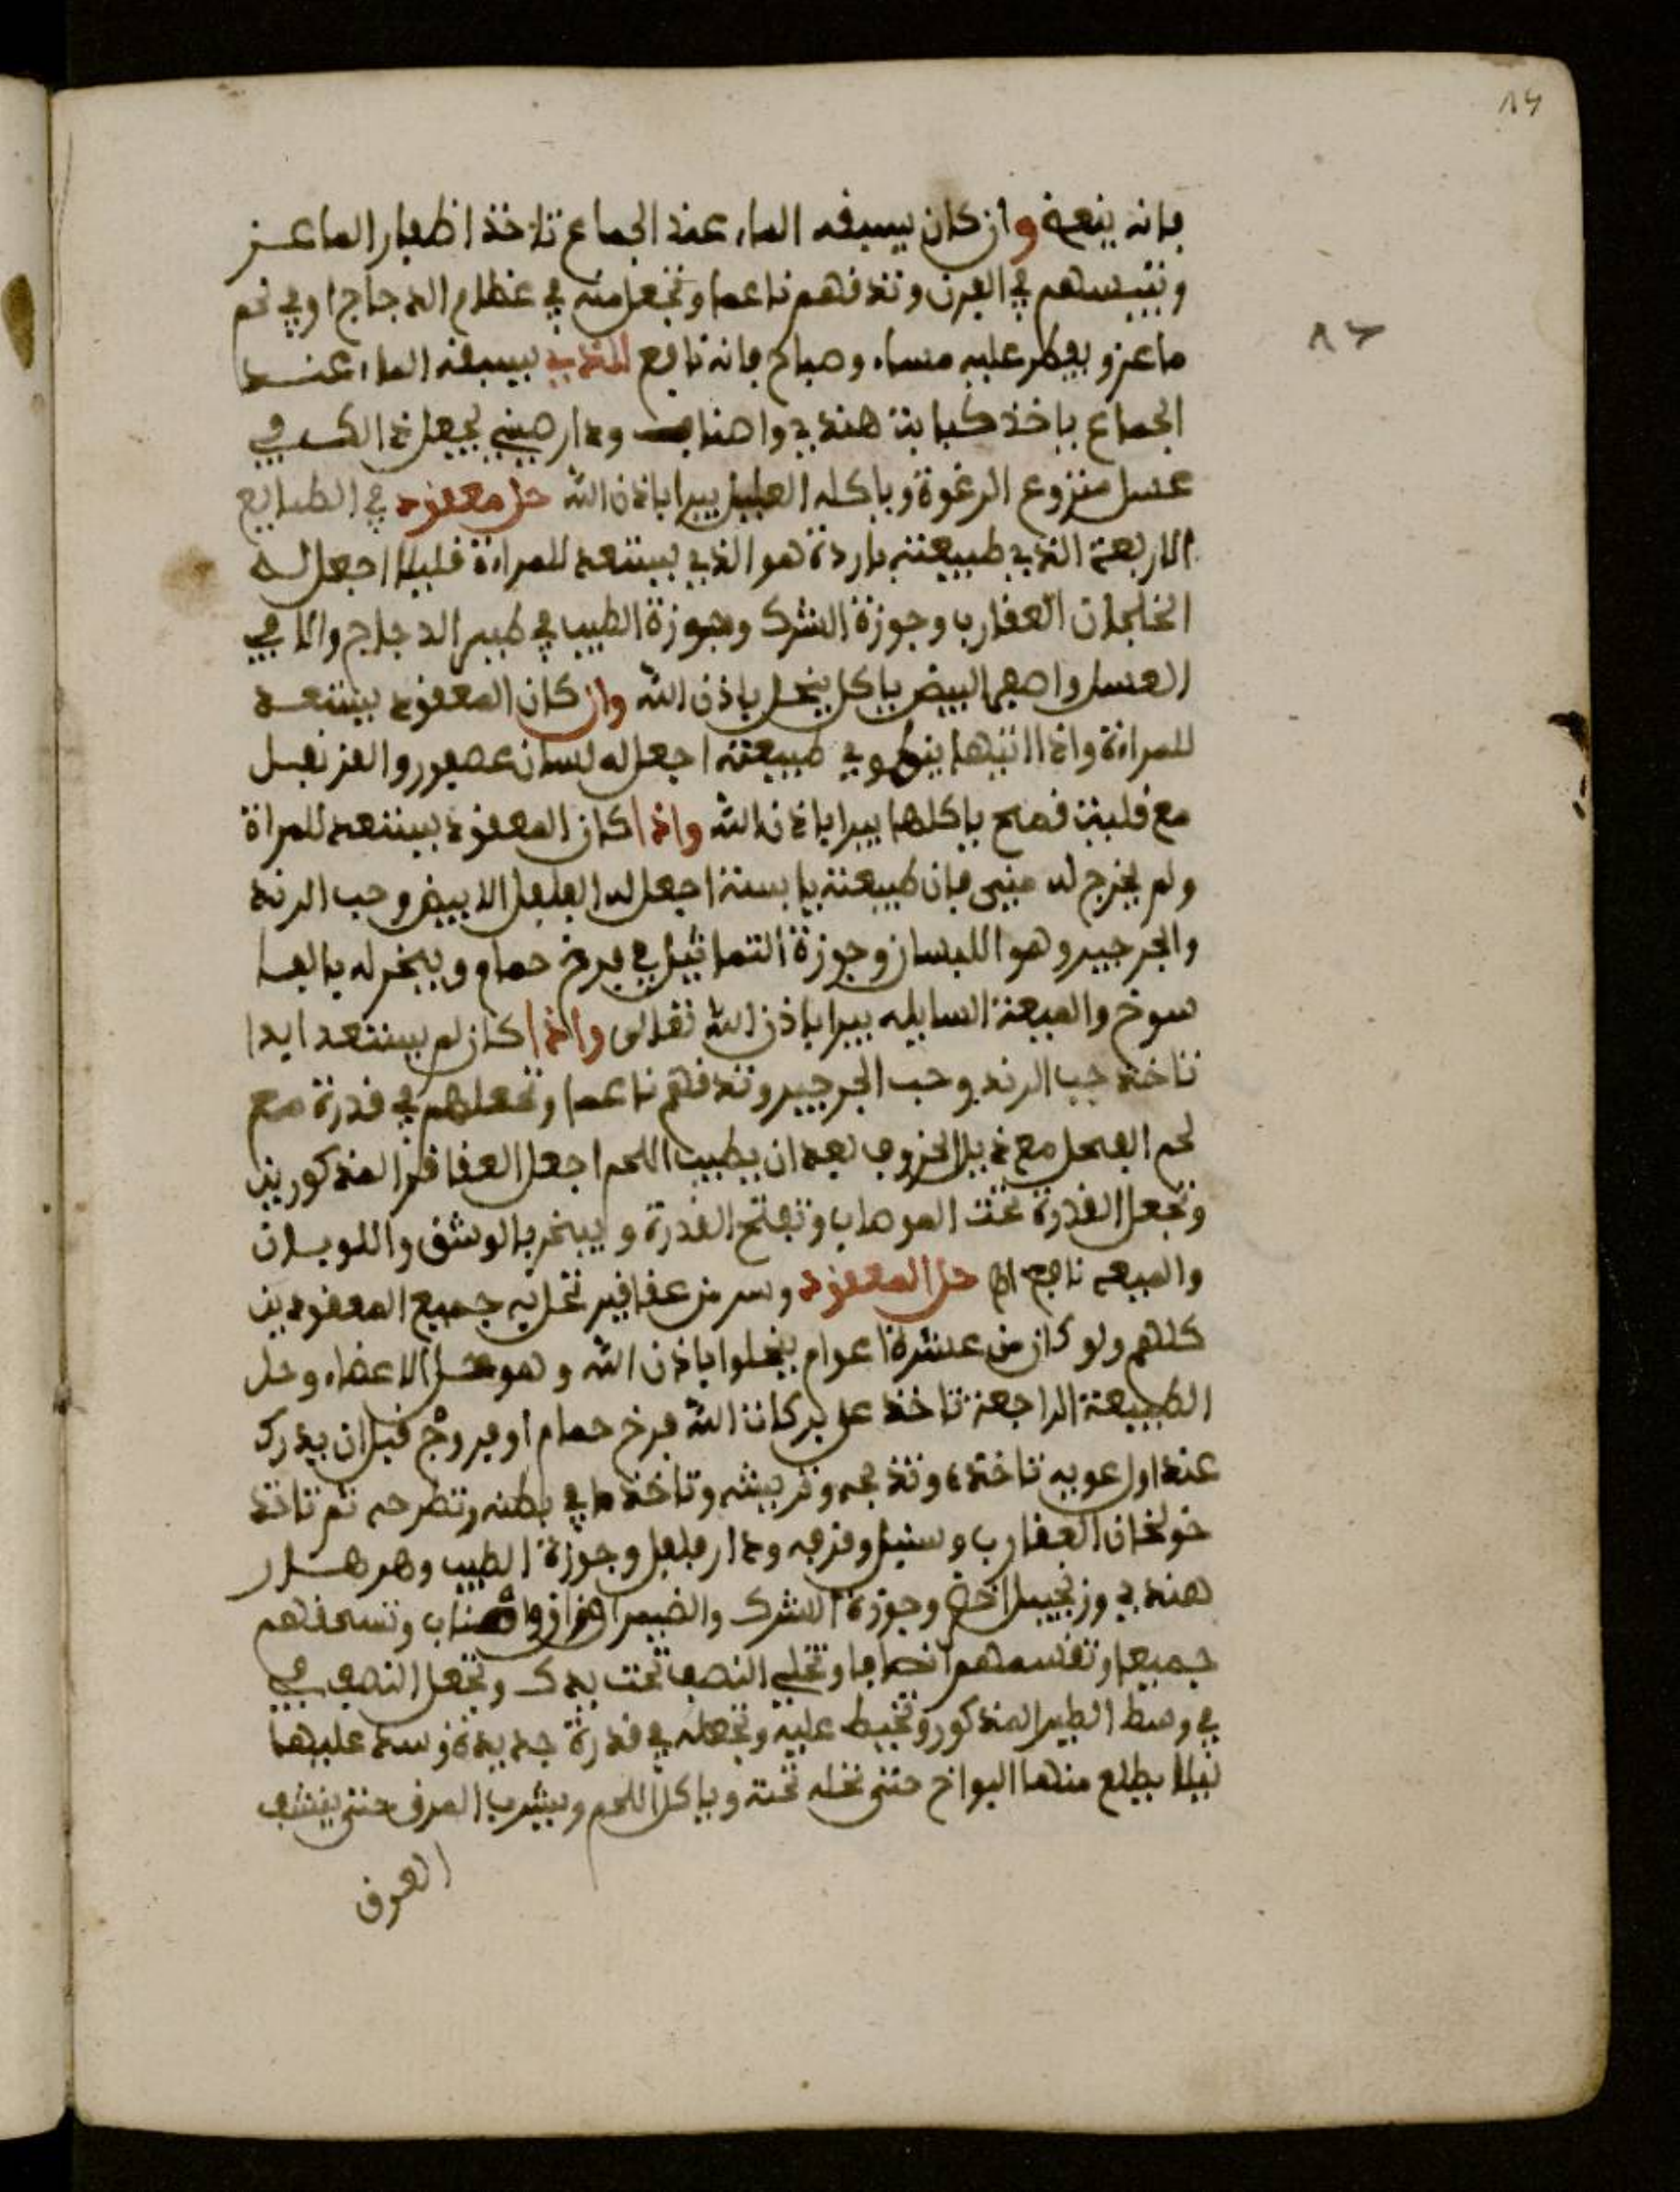 ٨٤
٨٦
فانه ينفعه وان كان يسبقه الماء عند الجماع تاخذ اظفار الماعز
وتيبسهم في الفرن وتدقهم ناعما وتجعل منه في عظام الدجاج او في لحم
ماعز ويفطر عليه مساء وصباح فانه نافع للذي يسبقه الماء عند
الجماع ياخذ كبابة هندي واهناب ودار صيني يجعل ذالك في
عسل منزوع الرغوة وياكله العليل يبرا باذن الله حل معقود في الطبايع
الاربعة الذي طبيعته باردة هو الذي يستعد للمراة قليلا اجعل له
الخلجان العقارب وجوزة الشرك وجوزة الطيب في طير الدجاج والا في
العسل واصفر البيض ياكل ينحل باذن الله وان كان المعقود يستعد
للمراة واذا اتيها ينطوي طبيعته اجعل له لسان عصفور والقرنفل
مع قلية قمح ياكلها يبرا باذن الله واذا كان المعقود يستعد للمراة
ولم يخرج له مني فان طبيعته يابسة اجعل له الفلفل الابيض وحب الرند
والجرجير وهو اللبسان وجوزة التماثيل في فرخ حمام ويبخر له بالفا
سوخ والميعة السايله يبرا باذن الله تعالى واذا كان لم يستعد ابدا
تاخذ حب الرند وحب الجرجير وتدقهم ناعما وتجعلهم في قدرة مع
لحم الفحل مع ذيل الخروف بعد ان يطيب اللحم اجعل العقاقر المذكورين
وتجعل القدرة تحت الموهاب وتفتح القدرة ويبخر بالوشق واللوبان
والميعه نافع حل المعقود وسر من عقاقير تحل به جميع المعقودين
كلهم ولو كان من عشرة اعوام ينحلوا باذن الله وهو حل الاعضاء وحل
الطبيعة الراجعة تاخذ على بركات الله فرخ حمام او فروج قبل ان يدرك
عند اول عويه تاخذه وتذبحه وتريشه وتاخذ ما في بطنه وتطرحه ثم تاخذ
خولنجان العقارب وسنبل وقرفه ودار فلفل وجوزة الطيب وهرهار
هندي وزنجبيل اخضر وجوزة الشرك والضيمران واهناب وتسحقهم
جميعا وتقسمهم انصافا وتخلي النصف تحت يدك وتجعل النصف في
في وسط الطير المذكور وتخيط عليه وتجعله في قدرة جديدة وسد عليها
ليلا يطلع منها البواخ حتى تحله تحته وياكل اللحم ويشرب المرق حتى ينشف
العرق